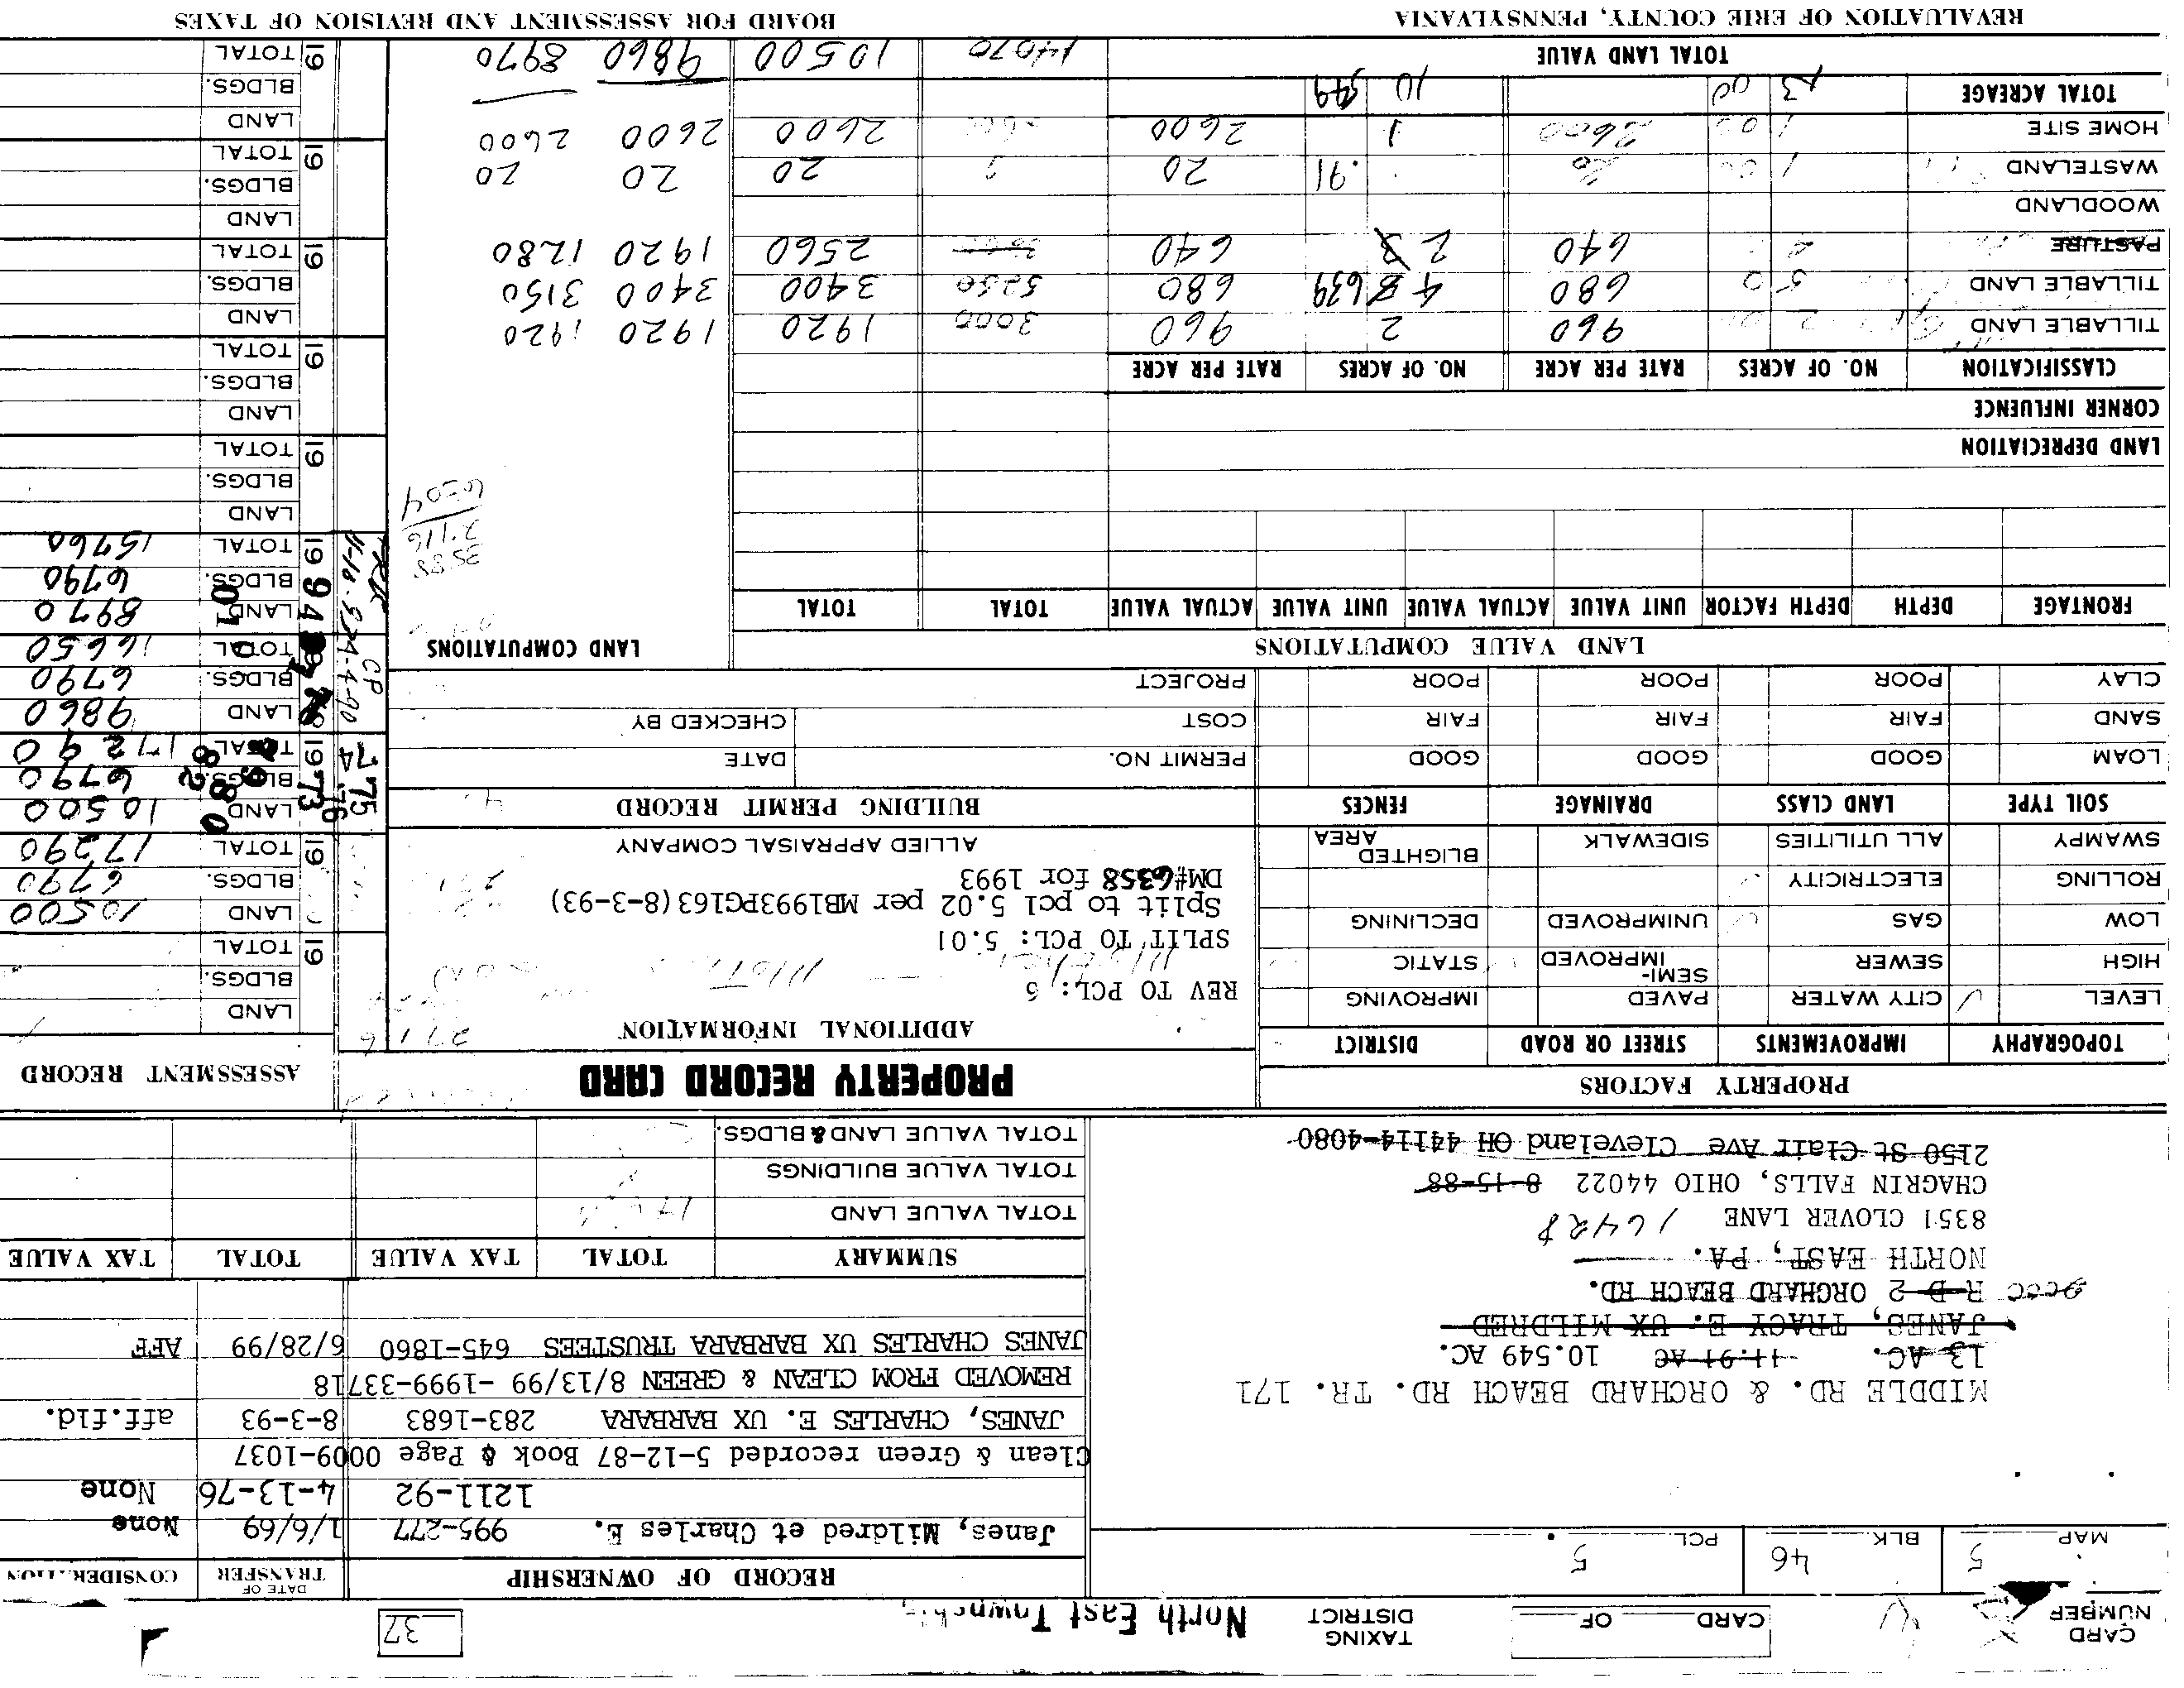 CARD NUMBER
CARD OF
TAXING DISTRICT
North East Township
37
MAP 5 BLK. 46 PCL. 5
RECORD OF OWNERSHIP
DATE OF TRANSFER
Janes, Mildred et Charles E. 995-277 1/6/69 None
1211-92 4-13-76 None
Clean & Green recorded 5-12-87 Book & Page 0009-1037
JANES, CHARLES E. UX BARBARA 283-1683 8-3-93 aff.fid.
REMOVED FROM CLEAN & GREEN 8/13/99 -1999-33718
JANES CHARLES UX BARBARA TRUSTEES 645-1860 6/28/99 AFF
MIDDLE RD. & ORCHARD BEACH RD. TR. 171
13 AC. 11.91 AC 10.549 AC.
JANES, TRACY E. UX MILDRED
R D 2 ORCHARD BEACH RD.
NORTH EAST, PA.
8351 CLOVER LANE 16428
CHAGRIN FALLS, OHIO 44022 8-15-88
2150 St Clair Ave Cleveland OH 44114-4080
SUMMARY TOTAL TAX VALUE TOTAL TAX VALUE
TOTAL VALUE LAND
TOTAL VALUE BUILDINGS
TOTAL VALUE LAND & BLDGS.
PROPERTY FACTORS
TOPOGRAPHY IMPROVEMENTS STREET OR ROAD DISTRICT
LEVEL CITY WATER PAVED IMPROVING
HIGH SEWER SEMI-IMPROVED STATIC
LOW GAS UNIMPROVED DECLINING
ROLLING ELECTRICITY
SWAMPY ALL UTILITIES SIDEWALK BLIGHTED AREA
SOIL TYPE LAND CLASS DRAINAGE FENCES
LOAM GOOD GOOD GOOD
SAND FAIR FAIR FAIR
CLAY POOR POOR POOR
PROPERTY RECORD CARD
ADDITIONAL INFORMATION
REV TO PCL: 6
SPLIT TO PCL: 5.01
Split to pcl 5.02 per MB1993PG163(8-3-93)
DM#6358 for 1993
ALLIED APPRAISAL COMPANY
BUILDING PERMIT RECORD
PERMIT NO. DATE
COST CHECKED BY
PROJECT
ASSESSMENT RECORD
LAND
BLDGS.
19 TOTAL
LAND 10500
BLDGS. 6790
19 TOTAL 17290
LAND 10500
BLDGS. 6790
1973 TOTAL 17290
LAND 9860
BLDGS. 6790
TOTAL 16650
LAND 8970
BLDGS. 6790
1994 TOTAL 15760
LAND
BLDGS.
19 TOTAL
LAND
BLDGS.
19 TOTAL
LAND
BLDGS.
19 TOTAL
LAND
BLDGS.
19 TOTAL
LAND
BLDGS.
19 TOTAL
LAND VALUE COMPUTATIONS
LAND COMPUTATIONS
FRONTAGE DEPTH DEPTH FACTOR UNIT VALUE ACTUAL VALUE UNIT VALUE ACTUAL VALUE TOTAL TOTAL
LAND DEPRECIATION
CORNER INFLUENCE
CLASSIFICATION NO. OF ACRES RATE PER ACRE NO. OF ACRES RATE PER ACRE
TILLABLE LAND 2 960 2 960 3000 1920 1920 1920
TILLABLE LAND 5 0 680 4 639 680 5250 3400 3400 3150
PASTURE 640 2 640 2560 1920 1280
WOODLAND
WASTELAND 1 20 .91 20 20 20 20
HOME SITE 1 2600 1 2600 2600 2600 2600
TOTAL ACREAGE 13 00 10 549
TOTAL LAND VALUE 14070 10500 9860 8970
REVALUATION OF ERIE COUNTY, PENNSYLVANIA
BOARD FOR ASSESSMENT AND REVISION OF TAXES